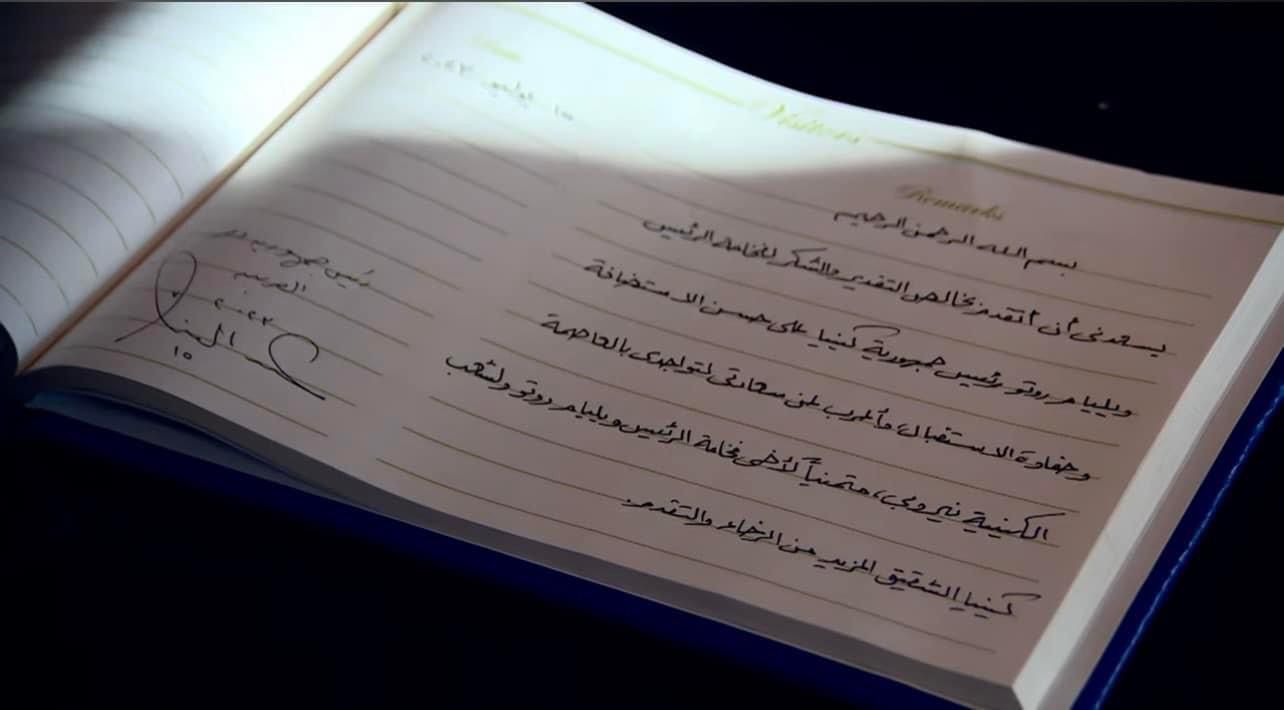 Visitors
Remarks
١٥ يوليو ٢٠٢٣
بسم الله الرحمن الرحيم
يسعدنى أن أتقدم بخالص التقدير والشكر لفخامة الرئيس
ويليام روتو رئيس جمهورية كينيا على حسن الاستضافة
وحفاوة الاستقبال، وأعرب عن سعادتى لتواجدى بالعاصمة
الكينية نيروبى، متمنياً لأخى فخامة الرئيس ويليام روتو ولشعب
كينيا الشقيق المزيد من الرخاء والتقدم.
رئيس جمهورية مصر
العربية
٢٠٢٣
١٥